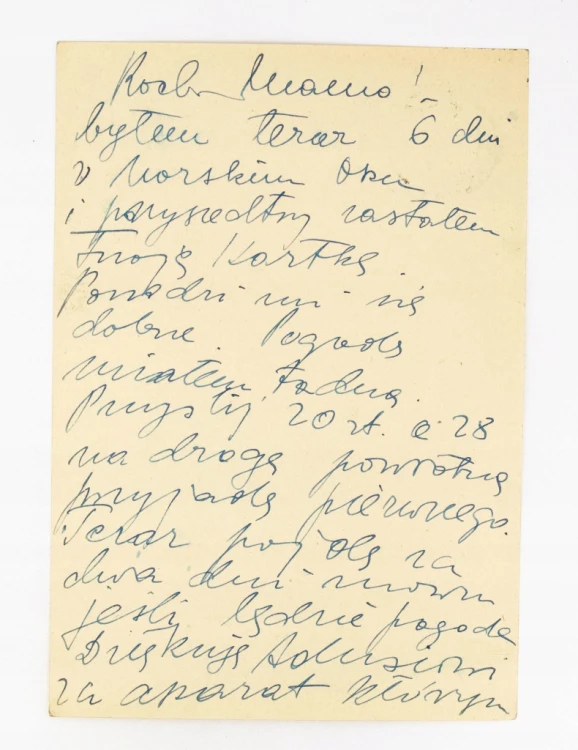 Kochana Mamo!
byłem teraz 6 dni
w Morskim Oku
i przyszedłszy zastałem
Twoją Kartkę
Powodzi mi się
dobrze. Pogodę
miałem ładną.
Przyślij 20 zł. a 28
na drogę powrotną
przyjadę pierwszego.
Teraz pojdę za
dwa dni znowu
jeśli będzie pogoda
Dziękuję Adusiowi
za aparat którym